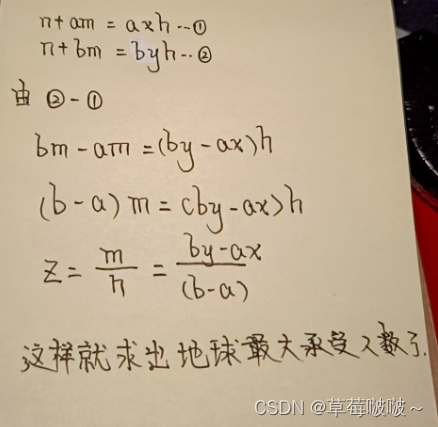 n+am = axh --①
n+bm = byh --②
由 ②-①
bm-am=(by-ax)h
(b-a) m = (by-ax)h
z = m/h = by-ax/(b-a)
这样就求出地球最大承受人数了.
CSDN @草莓啵啵～